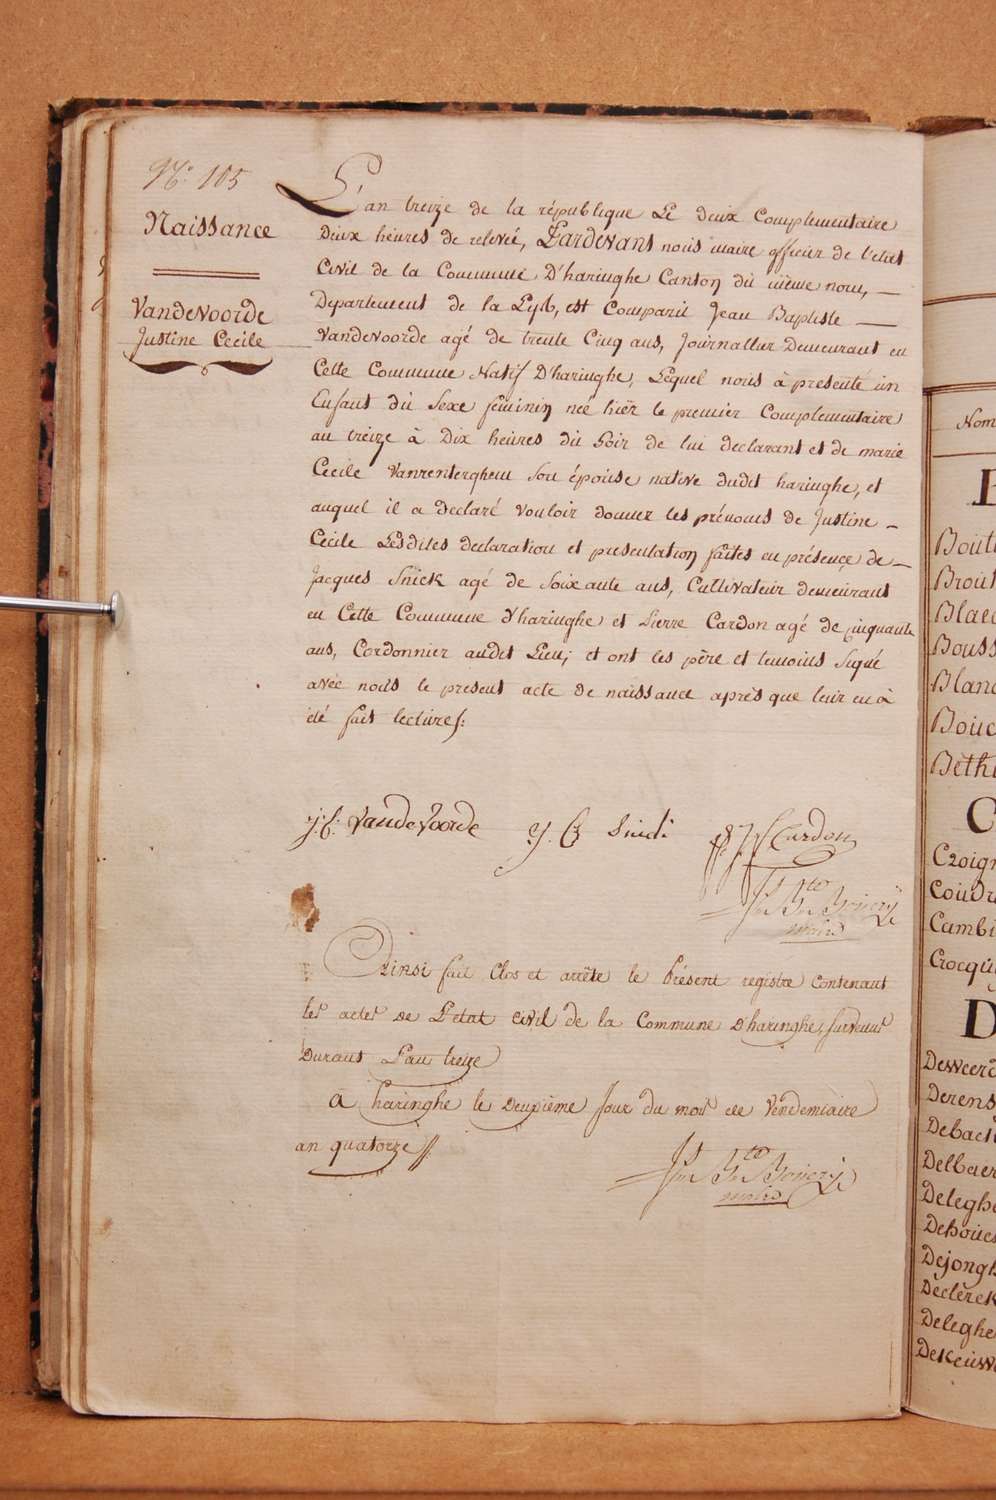 N.° 105
Naissance
VandeVoorde
Justine Cecile
L'an treize de la république Le deux Complementaire
Deux heures de relevée, Pardevant nous maire officier de l'etat
Civil de la Commune D'haringhe Canton du même nom, —
Departement de la Lys, est Comparu Jean Baptiste —
VandeVoorde agé de trente Cinq ans, Journallier Demeurant en
Cette Commune Natif D'haringhe, Lequel nous à presenté un
Enfant du Sexe féminin neé hiër le premier Complementaire
an treize à Dix heures du Soir de lui declarant et de marie
Cecile Vanrenterghem Son épouse native dudit haringhe, et
auquel il a declaré vouloir donner les prénoms de Justine –
Cecile Lesdites declaration et presentation faites en présence de –
Jacques Snick agé de Soixante ans, Cultivateur demeurant
en Cette Commune d'haringhe et Pierre Cardon agé de Cinquante
ans, Cordonnier audit Lieu; et ont les père et temoins Signé
avéc nous le present acte de naissance aprés que leur en à
été fait lecture:
VandeVoorde
Cardon
Ainsi fait Clos et arrête le Présent registre contenant
les actes De L'etat Civil de la Commune D'haringhe, survenus
Durant L'an treize
A haringhe le Deuxième Jour du mois de Vendemiaire
an quatorze
Nom
B
Bout
Brout
Blae
Bouss
Blan
Bouc
Beth
C
Croig
Coudr
Cambi
Crocqu
D
Deweerd
Derens
Deback
Delbaer
Deleghe
Dehoue
Dejongh
Declerck
Deleghe
Dekeuw